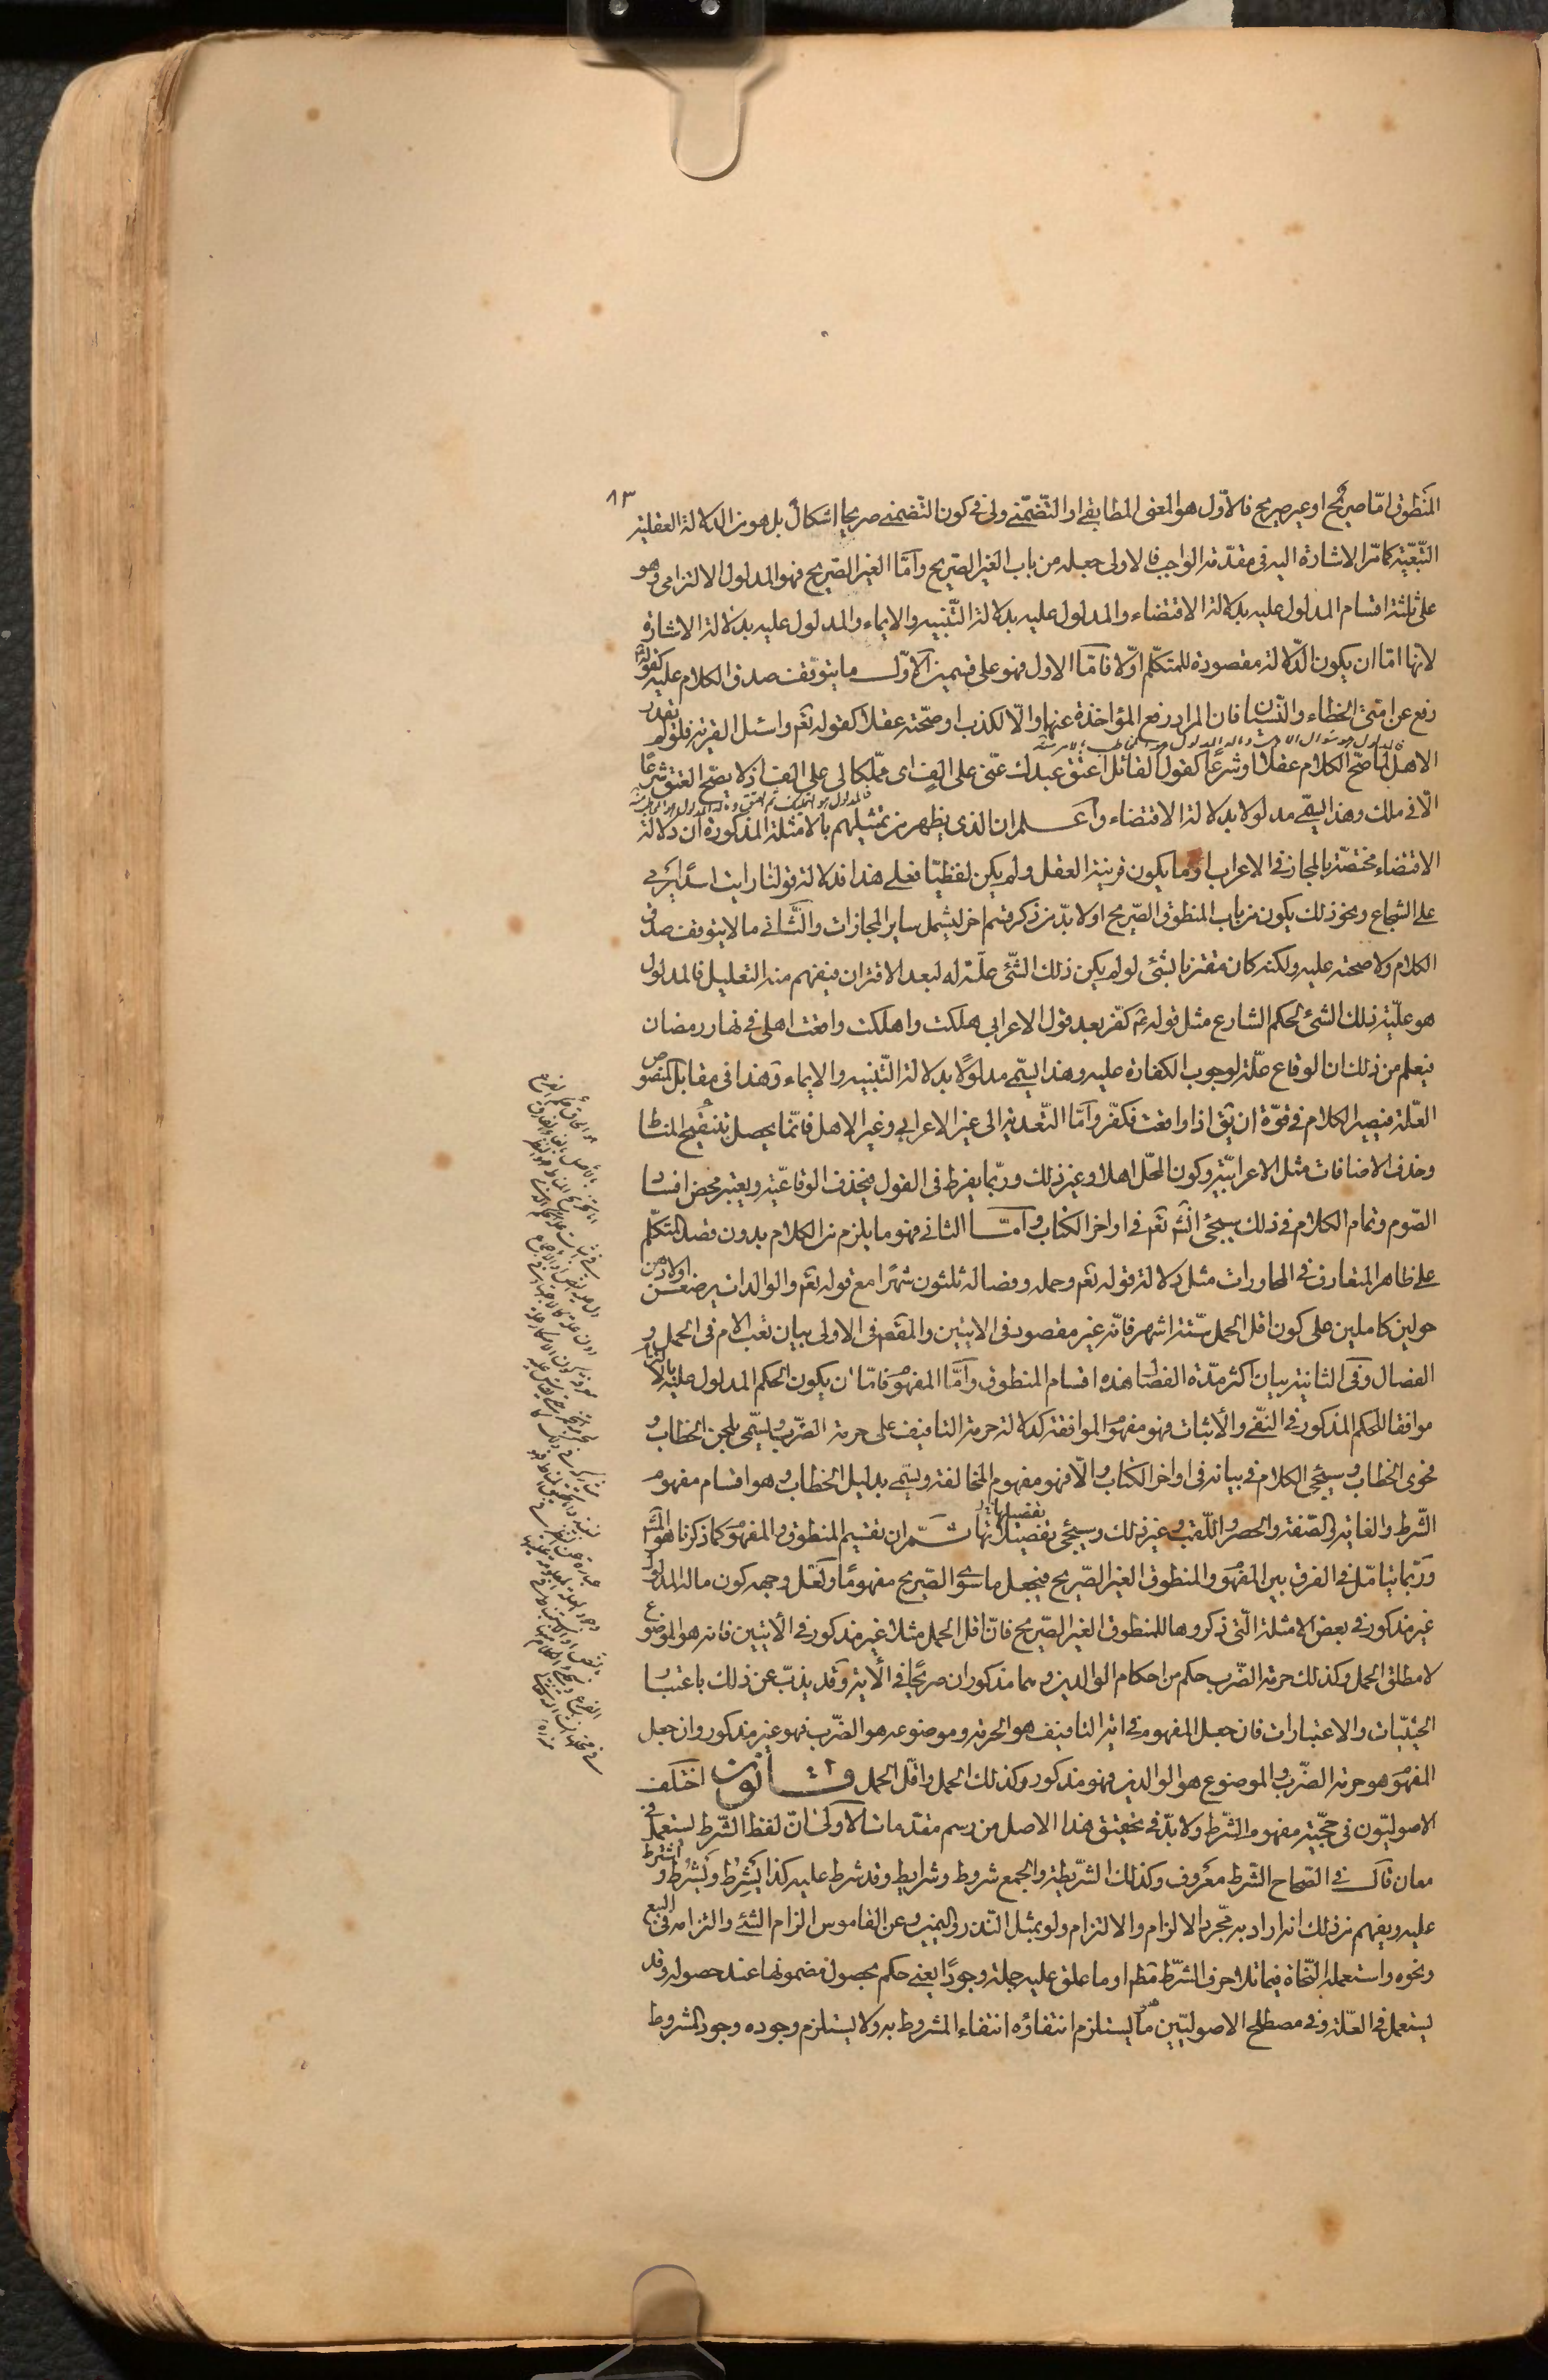 ٨٣
المنطوق امّا صريح او غير صريح فالاوّل هو المعنى المطابقي او التّضمّني ولي في كون التضمني صريحا اشكال بل هو من الدلالة العقلية
التّبعّية كما مرّ الاشارة اليه في مقدّمة الواجب فالاولى جعله من باب الغير الصّريح وامّا الغير الصّريح فهو المدلول الالتزامي وهو
على ثلثة اقسام المدلول عليه بدلالة الاقتضاء والمدلول عليه بدلالة التّنبيه والايماء والمدلول عليه بدلالة الاشارة
لانها امّا ان يكون الدّلالة مقصودة للمتكلّم او لا فامّا الاول فهو على قسمين الاوّل ما يتوقّف صدق الكلام عليه كقوله
رفع عن امتي الخطاء والنّسيان فان المراد رفع المؤاخذة عنها والّا لكذب او صحّته عقلا كقوله تعم واسئل القرية فلو لم يقدر
الاهل لما صحّ الكلام عقلا او شرعا كقول القائل اعتق عبدك عنّي على الف اى مملّكا لي على الف اذ لا يصحّ العتق شرعًا
الّا في ملك وهذا يسمّى مدلولا بدلالة الاقتضاء واعلم ان الذي يظهر من تمثيلهم بالامثلة المذكورة ان دلالة
الاقتضاء مختصّة بالمجاز في الاعراب او ما يكون قرينة العقل ولم يكن لفظيّا فعلى هذا فدلالة قولنا رايت اسدا يرمى
على الشجاع ونحو ذلك يكون من باب المنطوق الصّريح او لا بدّ من ذكر قسم اخر ليشمل ساير المجازات والثّاني ما لا يتوقف صدق
الكلام ولا صحته عليه ولكنه كان مقترنا بشئ لو لم يكن ذلك الشّئ علّة له لبعد الاقتران فيفهم منه التعليل فالمدلول
هو علّية ذلك الشئ لحكم الشارع مثل قوله ع كفّر بعد قول الاعرابي هلكت واهلكت واقعت اهلي في نهار رمضان
فيعلم من ذلك ان الوقاع علّة لوجوب الكفارة عليه وهذا يسمّى مدلولًا بدلالة التّنبيه والايماء وهذا في مقابل المنصوص
العلّة فيصير الكلام في قوّة ان يق اذا واقعت فكفّر وامّا التّعدية الى غير الاعرابي وغير الاهل فانّما يحصل بتنقيح المناط
وحذف الاضافات مثل الاعرابيّة وكون المحلّ اهلا وغير ذلك وربّما يفرط في القول فيحذف الوقاعيّة ويعتبر محض افساد
الصّوم وتمام الكلام في ذلك سيجئ انشء تعم في اواخر الكتاب وامّا الثاني فهو ما يلزم من الكلام بدون قصد المتكلّم
على ظاهر المتعارف في المحاورات مثل دلالة قوله تعم وحمله وفصاله ثلثون شهرًا مع قوله تعم والوالدات يرضعن اولادهن
حولين كاملين على كون اقل الحمل ستّة اشهر فانّه غير مقصود في الايتين والمقصم في الاولى بيان تعب الام في الحمل و
الفصال وفي الثانية بيان اكثر مدّة الفصال هذه اقسام المنطوق وامّا المفهوم فامّا ان يكون الحكم المدلول عليه بالالتزام
موافقا للحكم المذكور في النّفي والاثبات فهو مفهوم الموافقة كدلالة حرمة التافيف على حرمة الضّرب ويسمّى بلحن الخطاب و
فحوى الخطاب وسيجئ الكلام في بيانه في اواخر الكتاب والّا فهو مفهوم المخالفة ويسمّى بدليل الخطاب وهو اقسام مفهوم
الشّرط والغاية والصّفة والحصر واللّقب وغير ذلك وسيجئ تفصيلاتها ثمّ ان تقسيم المنطوق والمفهوم كما ذكرنا هو المشهور
وربّما يتامّل في الفرق بين المفهوم والمنطوق الغير الصّريح فيجعل ما سوى الصّريح مفهومًا ولعلّ وجهه كون ما له المدلول
غير مذكور في بعض الامثلة الّتي ذكروها للمنطوق الغير الصّريح فانّ اقل الحمل مثلا غير مذكور في الايتين فانه هو الموضوع
لا مطلق الحمل وكذلك حرمة الضّرب حكم من احكام الوالدين وهما مذكوران صريحًا في الاية وقد يذبّ عن ذلك باعتبار
الحيثيّات والاعتبارات فان جعل المفهوم في اية التافيف هو الحرمة وموضوعه هو الضّرب فهو غير مذكور وان جعل
المفهوم هو حرمة الضّرب والموضوع هو الوالدين فهو مذكور وكذلك الحمل واقلّ الحمل قانون اختلف
الاصوليّون في حجّية مفهوم الشّرط ولا بدّ في تحقيق هذا الاصل من رسم مقدّمات الاولى انّ لفظ الشّرط يستعمل في
معان قال في الصّحاح الشّرط معروف وكذلك الشّريطة والجمع شروط وشرايط وقد شرط عليه كذا يَشرِط ويَشرُط واشترط
عليه ويفهم من ذلك انه اراد به مجّرد الالزام والالتزام ولو بمثل النّذر واليمين وعن القاموس الزام الشئ والتزامه في البيع
ونحوه واستعمله النّحاة فيما تلا حرف الشّرط مطم او ما علق عليه جملة وجودًا يعني حكم بحصول مضمونها عند حصوله وقد
يستعمل في العلّة وفي مصطلح الاصوليّين هو ما يستلزم انتفاؤه انتفاء المشروط به ولا يستلزم وجوده وجود المشروط